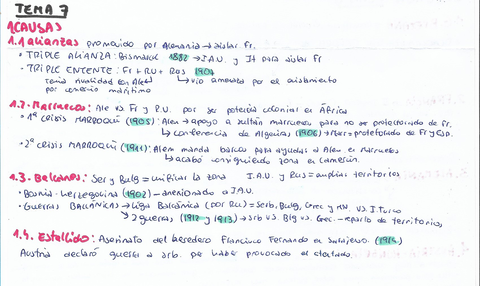 TEMA 7
1.CAUSAS
1.1 alianzas promovido por Alemania → aislar Fr.
• TRIPLE ALIANZA: Bismarck 1882 → I.A.U. y It para aislar Fr
• TRIPLE ENTENTE: Fr + RU + Rus 1907
tenía rivalidad con Alem → vio amenaza por el aislamiento
por comercio marítimo
1.2. Marruecos: Ale vs Fr y R.U. por ser potencia colonial en África
• 1ª CRISIS MARROQUÍ (1905): Alem → apoyo a sultán marruecos para no ser protectorado de Fr.
→ conferencia de Algeciras (1906) → Marr → protectorado de Fr y Esp.
• 2ª CRISIS MARROQUÍ (1911): Alem manda barcos para ayudar a Alem. en Marruecos
→ acabó consiguiendo zona en Camerún.
1.3. Balcanes: Ser y Bulg = unificar la zona I.A.U. y Rus = ampliar territorios
• Bosnia-Herzegovina (1902) → anexionado a I.A.U.
• Guerras BALCÁNICAS → Liga Balcánica (por RU) = Serb, Bulg, Grec y MN. VS. I. Turco
→ 2 guerras (1912 y 1913) → Srb vs. Blg vs. Grec. → reparto de territorios,
1.4. Estallido: Asesinato del heredero Francisco Fernando en Sarajevo. (1914)
Austria declaró guerra a srb. por haber provocado el atentado.